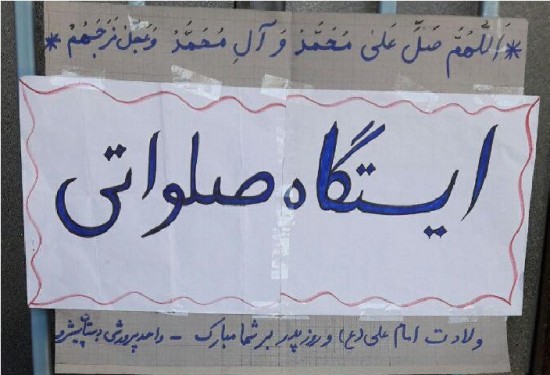 *اَللّهُمَّ صَلِّ عَلیٰ مُحَمَّدٍ وَ آلِ مُحَمَّدٍ وَعَجِّل فَرَجَهُمْ*
ایستگاه صلواتی
ولادت امام علی (ع) و روز پدر بر شما مبارک - واحد پرورشی دبستان پیشرو